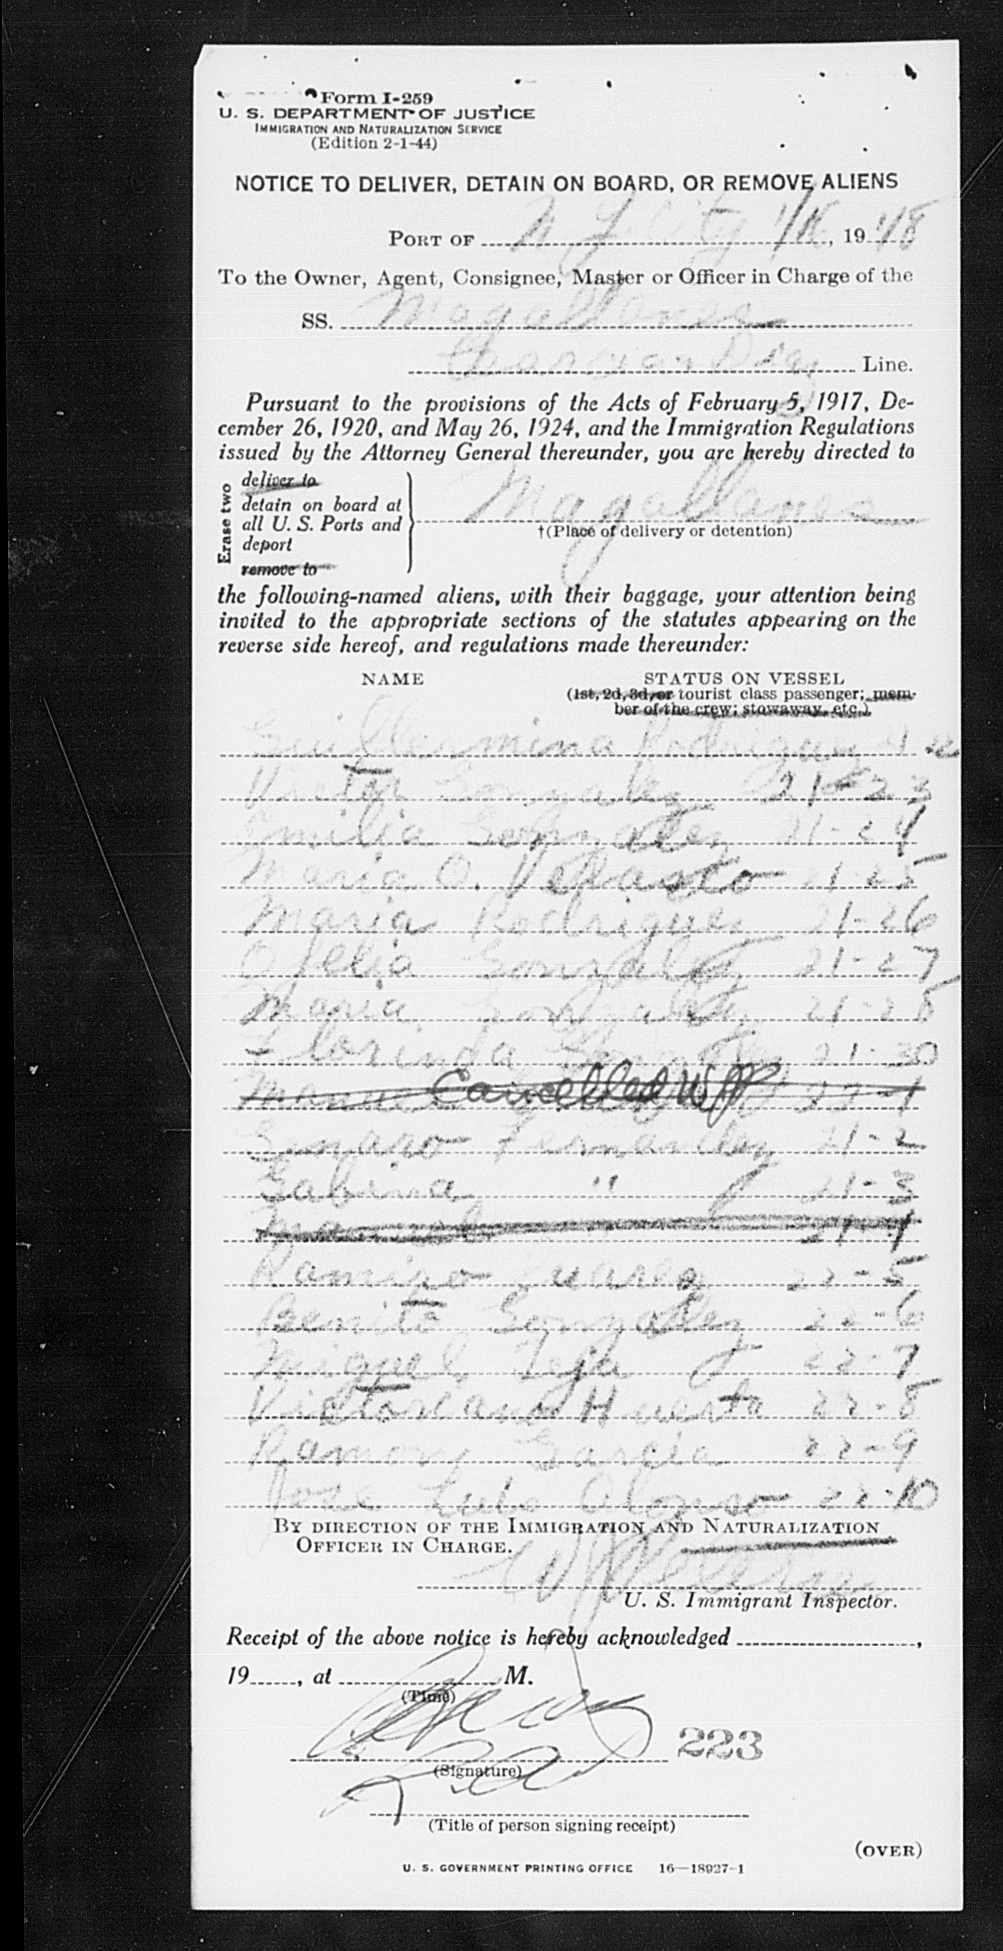 Form I-259
U. S. DEPARTMENT OF JUSTICE
IMMIGRATION AND NATURALIZATION SERVICE
(Edition 2-1-44)
NOTICE TO DELIVER, DETAIN ON BOARD, OR REMOVE ALIENS
PORT OF N Y City 1/18, 19 48
To the Owner, Agent, Consignee, Master or Officer in Charge of the
SS. Magallanes
Garcia & Diaz Line.
Pursuant to the provisions of the Acts of February 5, 1917, De-
cember 26, 1920, and May 26, 1924, and the Immigration Regulations
issued by the Attorney General thereunder, you are hereby directed to
Erase two
deliver to
detain on board at
all U. S. Ports and
deport
remove to
Magallanes
†(Place of delivery or detention)
the following-named aliens, with their baggage, your attention being
invited to the appropriate sections of the statutes appearing on the
reverse side hereof, and regulations made thereunder:
NAME STATUS ON VESSEL
(1st, 2d, 3d, or tourist class passenger; mem-
ber of the crew; stowaway, etc.)
Guillermina Rodriguez
Victor Gonzalez 21-23
Emilia Gonzalez 21-24
Maria O. Velasco 21-25
Maria Rodriguez 21-26
Ofelia Gonzalez 21-27
Maria Gonzalez 21-28
Florinda Gonzalez 21-30
Cancelled WP
Genaro Fernandez 21-2
Sabina " 21-3
21-4
Ramiro Suarez 22-5
Benito Gonzalez 22-6
Miguel Teja 22-7
Victoreano Huerta 22-8
Ramon Garcia 22-9
Jose Luis Alonso 22-10
BY DIRECTION OF THE IMMIGRATION AND NATURALIZATION
OFFICER IN CHARGE.
U. S. Immigrant Inspector.
Receipt of the above notice is hereby acknowledged ,
19 , at M.
(Time)
223
(Signature)
(Title of person signing receipt)
(OVER)
U. S. GOVERNMENT PRINTING OFFICE 16—18927-1